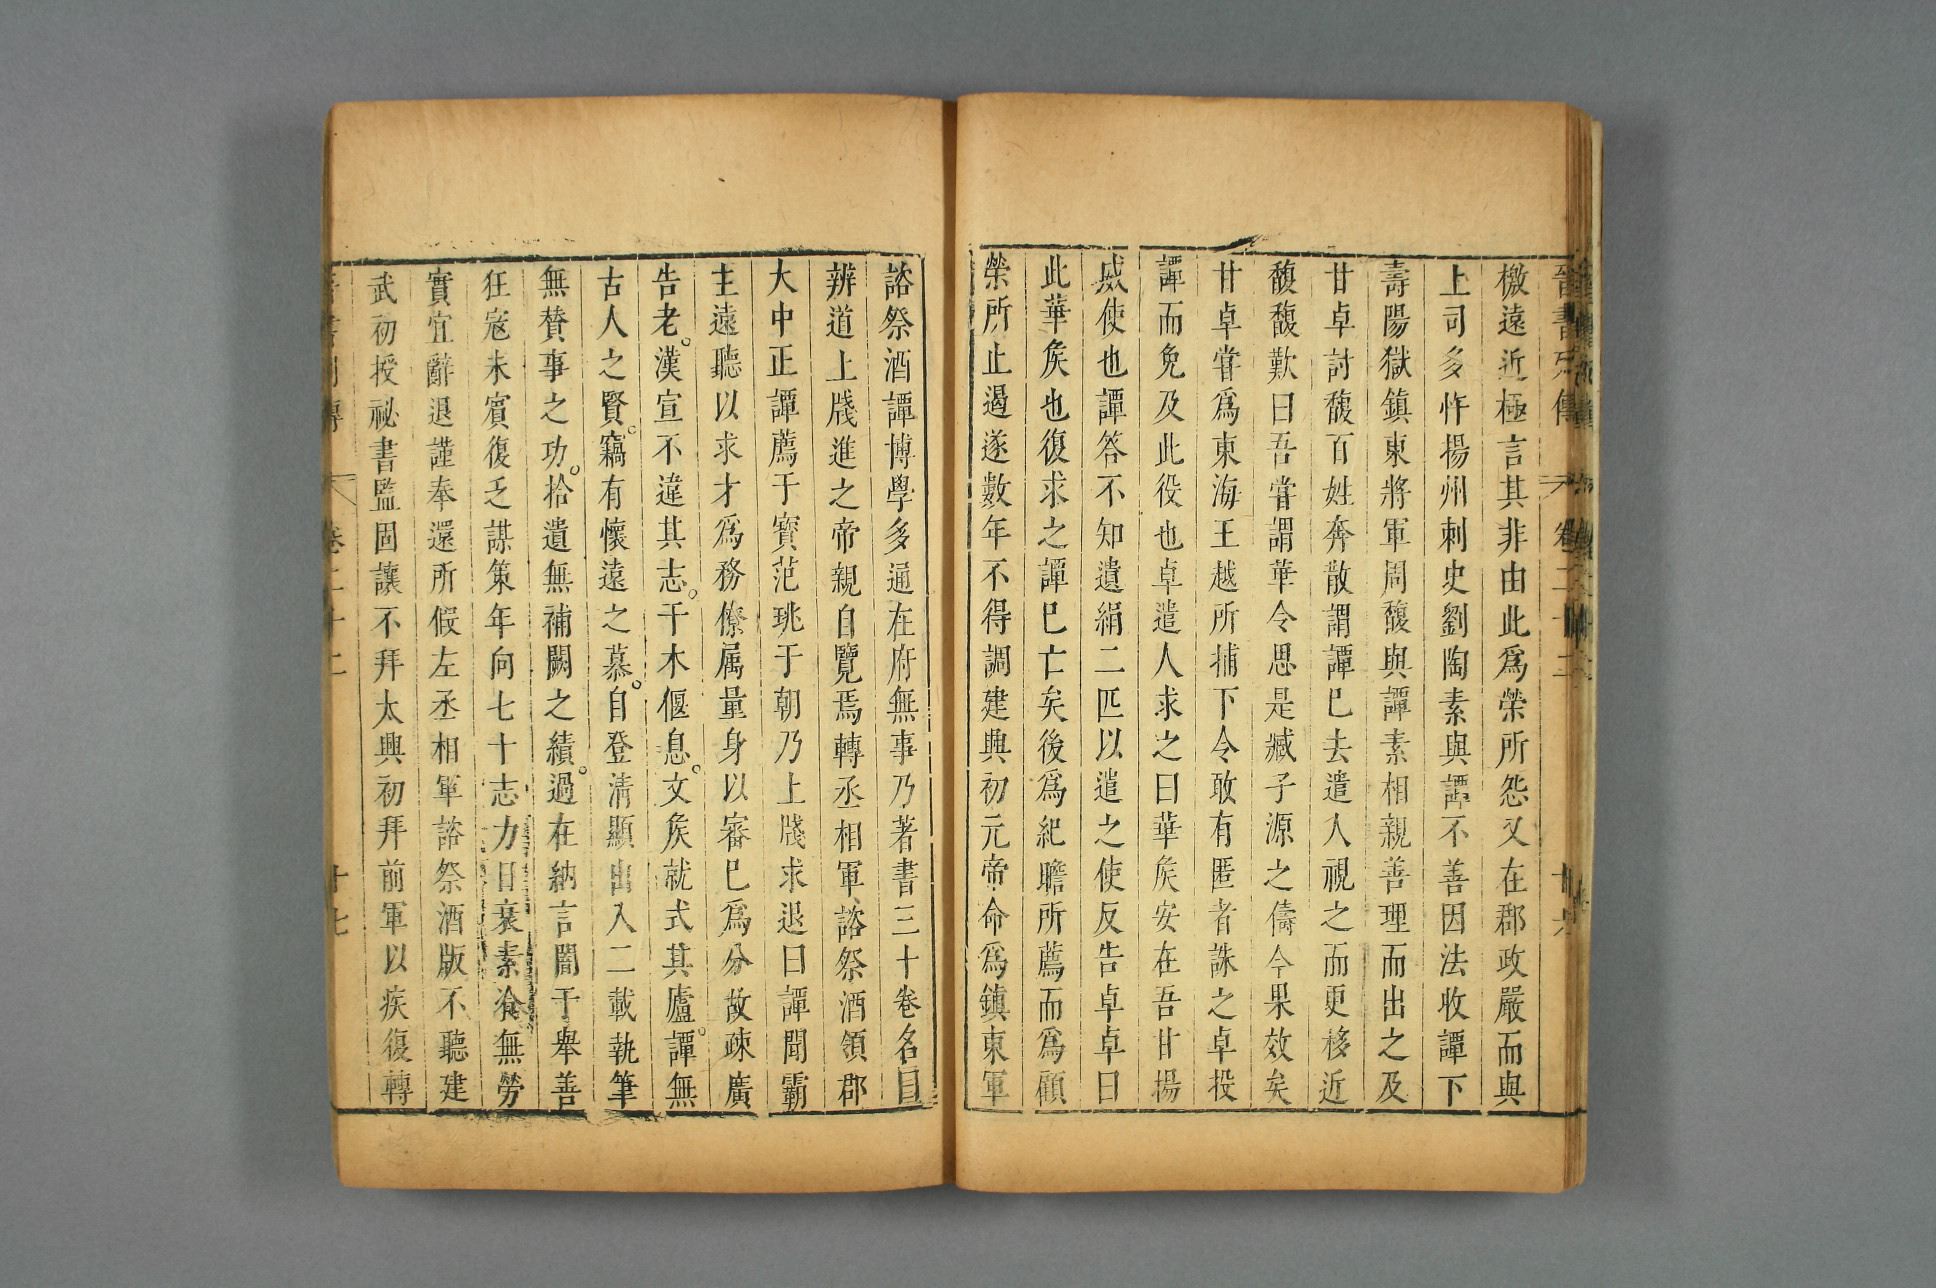 晉書列傳 卷二十二
檄遠近極言其非由此爲榮所怨又在郡政嚴而與
上司多忤揚州刺史劉陶素與譚不善因法收譚下
壽陽獄鎮東將軍周馥與譚素相親善理而出之及
甘卓討馥百姓奔散謂譚巳去遣人視之而更移近
馥馥歎曰吾嘗謂華令思是臧子源之儔今果效矣
甘卓嘗爲東海王越所捕下令敢有匿者誅之卓投
譚而免及此役也卓遣人求之曰華矦安在吾甘揚
威使也譚答不知遺絹二匹以遣之使反告卓卓曰
此華矦也復求之譚巳亡矣後爲紀瞻所薦而爲顧
榮所止遏遂數年不得調建興初元帝命爲鎮東軍
諮祭酒譚博學多通在府無事乃著書三十卷名曰
辨道上牋進之帝親自覽焉轉丞相軍諮祭酒領郡
大中正譚薦于寶范珧于朝乃上牋求退曰譚聞霸
主遠聽以求才爲務僚属量身以審巳爲分故疎廣
告老漢宣不違其志干木偃息文矦就式其廬譚無
古人之賢竊有懷遠之慕自登清顯出入二載執筆
無賛事之功拾遺無補闕之績過在納言闇于舉善
狂寇未賓復乏謀策年向七十志力日衰素湌無勞
實宜辭退謹奉還所假左丞相軍諮祭酒版不聽建
武初授祕書監固讓不拜太興初拜前軍以疾復轉
卷二十二
十七